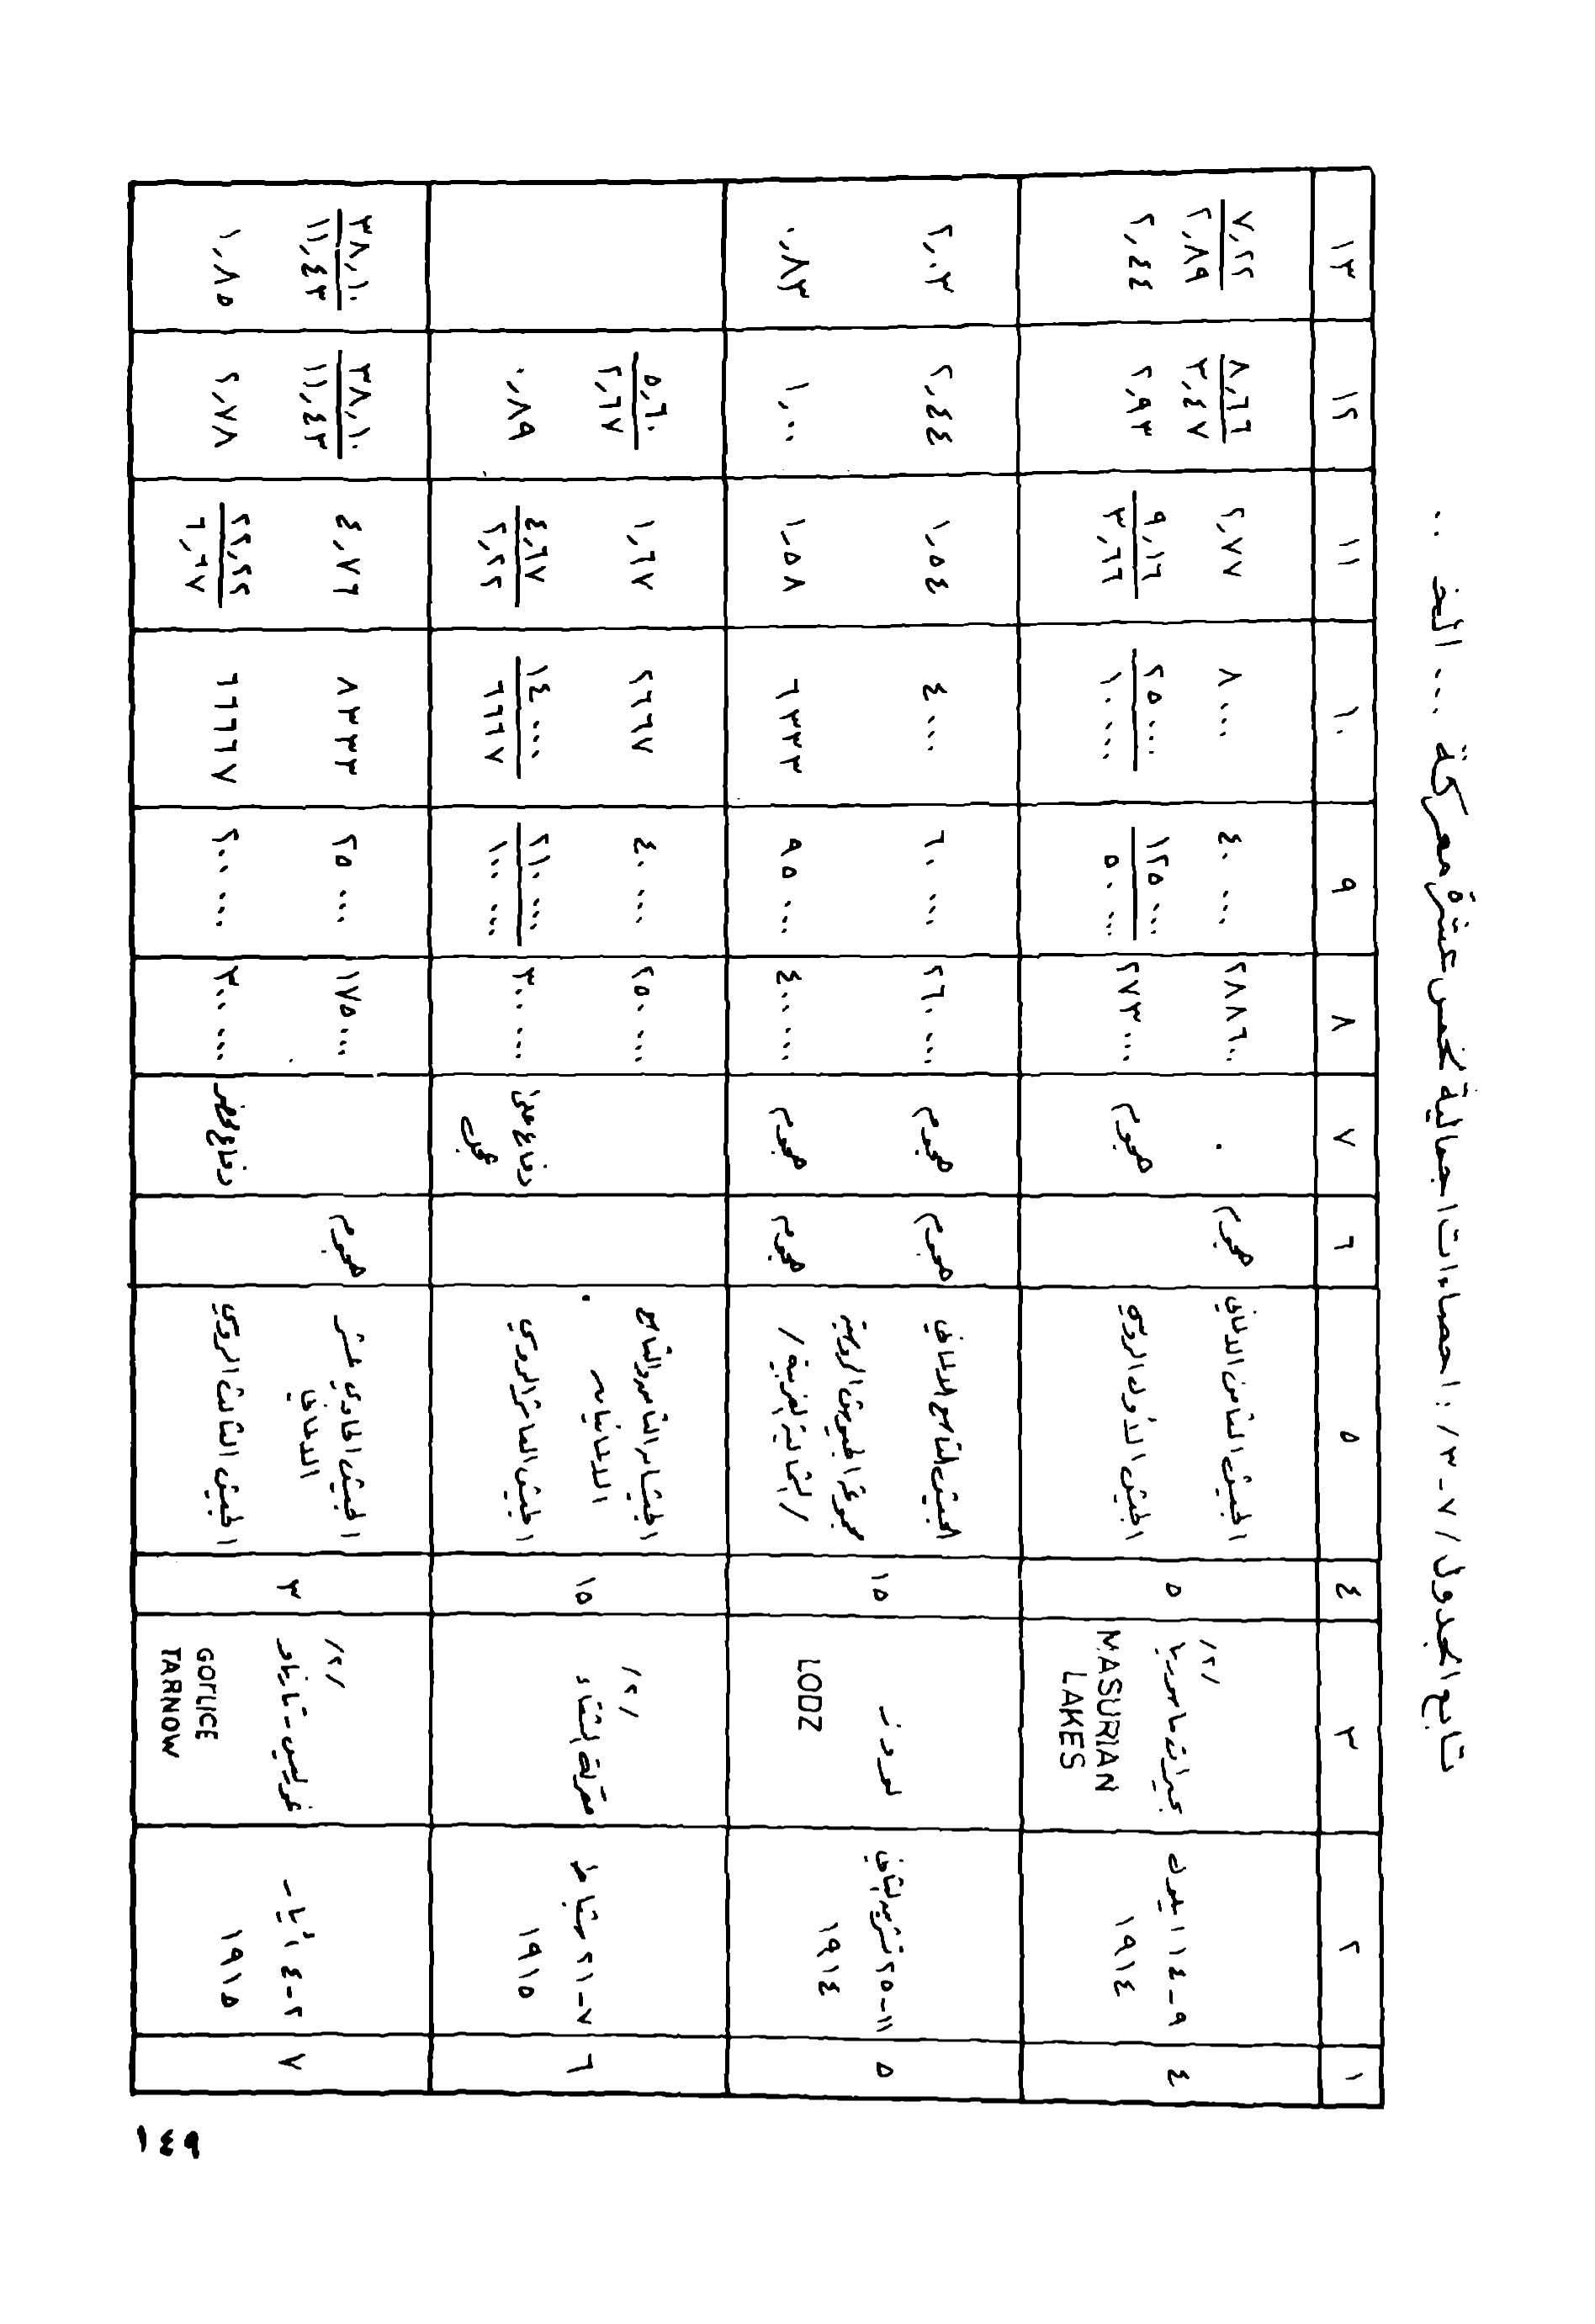 تابع الجدول /٧-٣/: احصاءات اجمالية لخمس عشرة معركة ... الخ ..
١ ٢ ٣ ٤ ٥ ٦ ٧ ٨ ٩ ١٠ ١١ ١٢ ١٣
٤
٩-١٤ ايلول
١٩١٤
/٢/
بحيرات ماسوريا
MASURIAN
LAKES
٥
الجيش الثامن الالماني هجوم . ٢٨٨٦٠٠ ٤٠ ٠٠٠ ٨ ٠٠٠ ٢,٧٧ ٨,٦٦ ٧,٢٢
٣,٤٧ ٢,٨٩
الجيش الأول الروسي هجوم ٢٧٣ ٠٠٠ ١٢٥ ٠٠٠ ٢٥ ٠٠٠ ٩,١٦ ٢,٩٣ ٢,٤٤
٥٠ ٠٠٠ ١٠ ٠٠٠ ٣,٦٦
٥
١١-٢٥ تشرين الثاني
١٩١٤
لودز
LODZ
١٥
الجيش التاسع الالماني هجوم هجوم ٢٦٠ ٠٠٠ ٦٠ ٠٠٠ ٤ ٠٠٠ ١,٥٤ ٢,٤٤ ٢,٠٣
مجموعة الجيوش الروسية
/الشمالية الغربية/ هجوم هجوم ٤٠٠ ٠٠٠ ٩٥ ٠٠٠ ٦ ٣٣٣ ١,٥٨ ١,٠٠ ٠,٨٣
٦
٧-٢١ شباط
١٩١٥
/٢/
معركة الشتاء
١٥
الجيشان الثامن والتاسع ٢٥٠ ٠٠٠ ٤٠ ٠٠٠ ٢٦٦٧ ١,٦٧ ٥,٦٠
الالمانيان ٢,٦٧
الجيش العاشر الروسي دفاع على ٣٠٠ ٠٠٠ ٢١٠ ٠٠٠ ١٤ ٠٠٠ ٤,٦٧ ٠,٨٩
عجل ١٠٠ ٠٠٠ ٦٦٦٧ ٢,٢٢
٧
٢-٤ أيار
١٩١٥
/٢/
غورليس-تارناو
GORLICE
TARNOW
٣
الجيش الحادي عشر هجوم ١٧٥ ٠٠٠ ٢٥ ٠٠٠ ٨٣٣٣ ٤,٧٦ ٣٨,١٠ ٣٨,١٠
الالماني ١١,٤٣ ١١,٤٣
الجيش الثالث الروسي دفاع محضر ٣٠٠ ٠٠٠ ٢٠٠ ٠٠٠ ٦٦٦٦٧ ٢٢,٢٢ ٢,٧٨ ١,٨٥
٦,٦٧
١٤٩